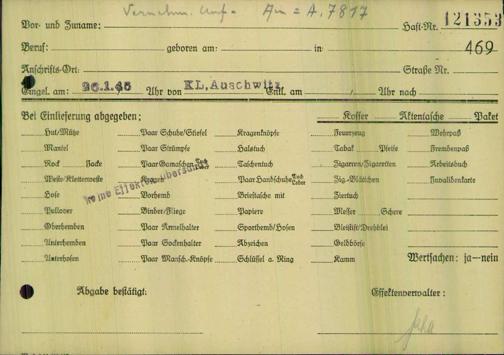 A = A.7817
Vor- und Zuname: Haft-Nr. 121353
Beruf: geboren am: in 469
Anschrifts-Ort: Straße Nr.
Eingel. am: 26.1.45 Uhr von KL. Auschwitz Entl. am / Uhr nach
Bei Einlieferung abgegeben: Koffer Aktentasche Paket
Hut/Mütze Paar Schuhe/Stiefel Kragenknöpfe Feuerzeug Wehrpaß
Mantel Paar Strümpfe Halstuch Tabak Pfeife Fremdenpaß
Rock Jacke Paar Gamaschen Tuch Taschentuch Zigarren/Zigaretten Arbeitsbuch
Weste/Kletterweste Kragen Paar Handschuhe Tuch Leder Zig.-Blättchen Invalidenkarte
keine Effekten übersandt
Hose Vorhemd Brieftasche mit Ziertuch
Pullover Binder/Fliege Papiere Messer Schere
Oberhemden Paar Ärmelhalter Sporthemd/Hosen Bleistift/Drehblei
Unterhemden Paar Sockenhalter Abzeichen Geldbörse
Unterhosen Paar Mansch.-Knöpfe Schlüssel a. Ring Kamm Wertsachen: ja—nein
Abgabe bestätigt: Effektenverwalter: